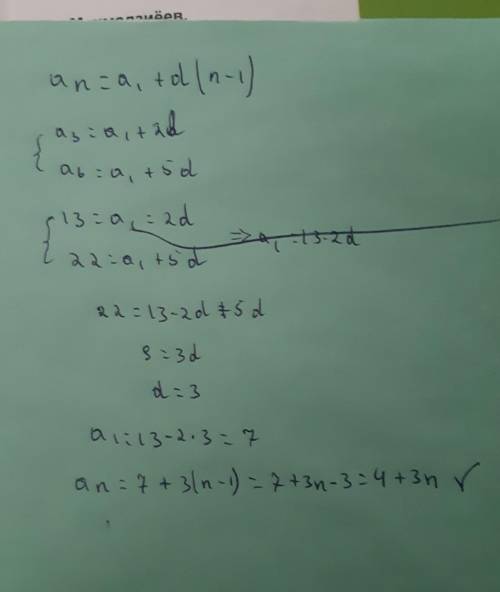 an = a1 + d(n-1)
a3 = a1 + 2d
a6 = a1 + 5d
13 = a1 = 2d
22 = a1 + 5d => a1 = 13-2d
22 = 13-2d+5d
9 = 3d
d = 3
a1 = 13-2·3 = 7
an = 7 + 3(n-1) = 7+3n-3 = 4+3n ✓